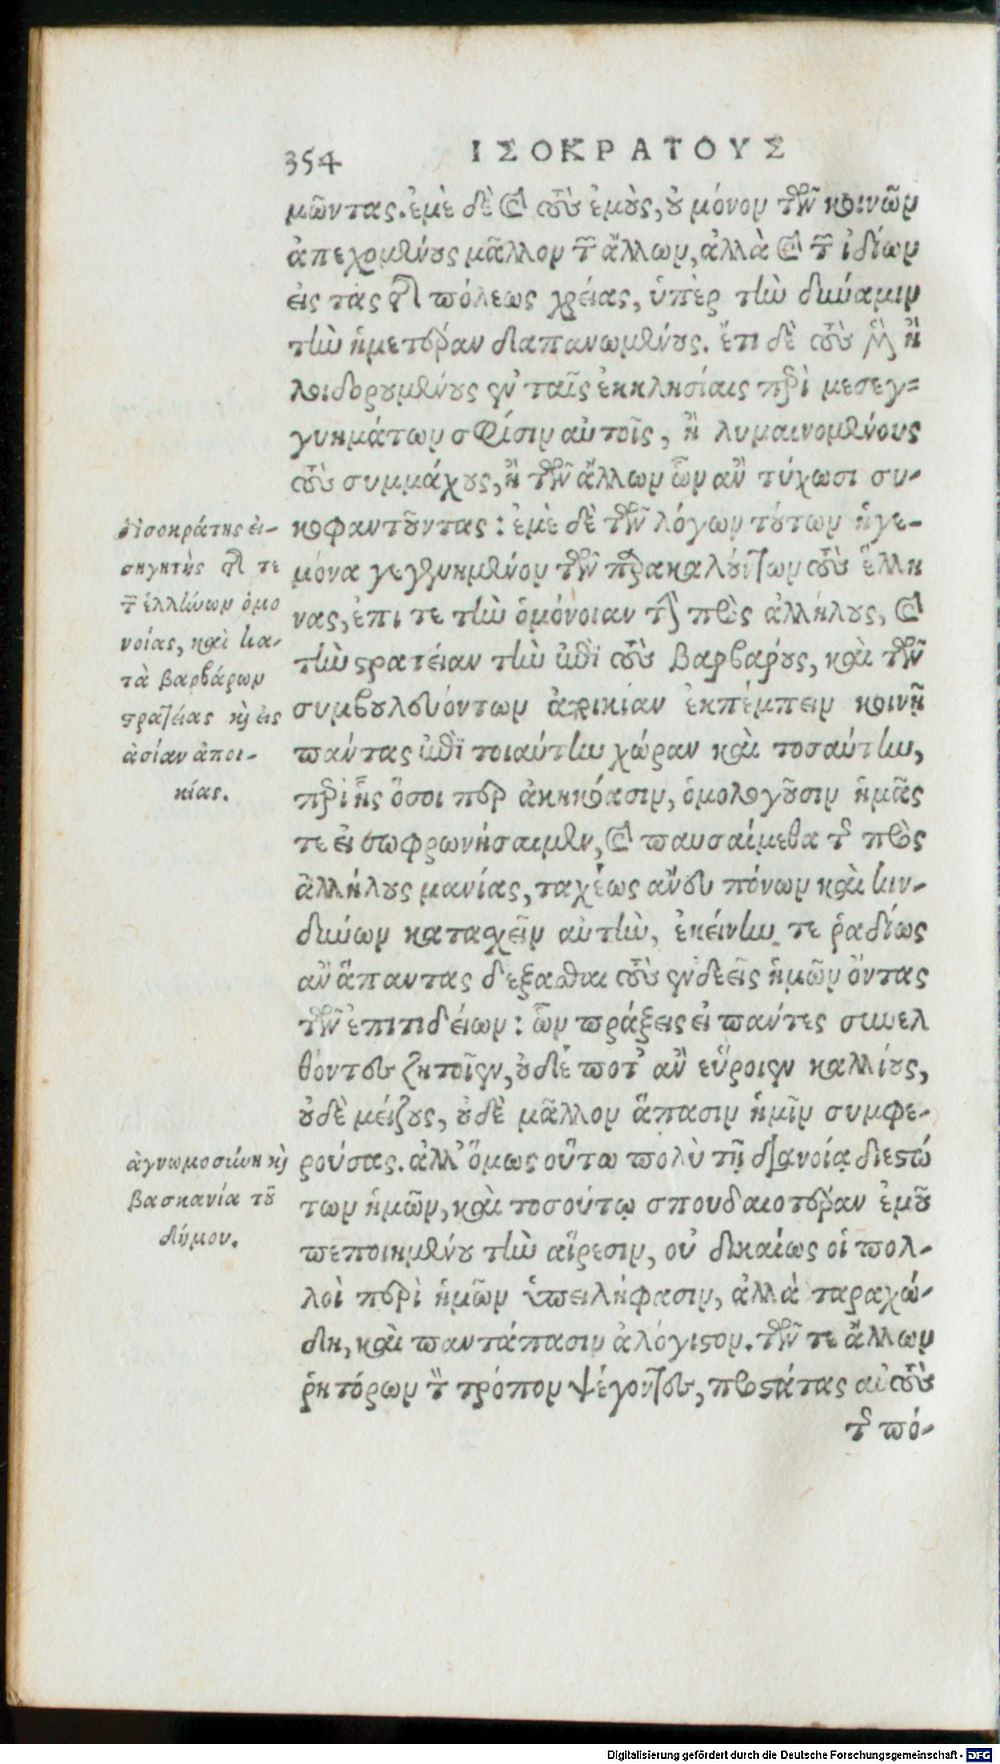 354
ΙΣΟΚΡΑΤΟΥΣ
μῶντας. ἐμὲ δὲ καὶ τοὺς ἐμοὺς, οὐ μόνον τῶν κοινῶν
ἀπεχομένους μᾶλλον τῶν ἄλλων, ἀλλὰ καὶ τῶν ἰδίων
εἰς τὰς τῆς πόλεως χρείας, ὑπὲρ τὴν δύναμιν
τὴν ἡμετέραν δαπανωμένους. ἔτι δὲ τοὺς μὲν ἢ
λοιδορουμένους ἐν ταῖς ἐκκλησίαις περὶ μεσεγ-
γυημάτων σφίσιν αὐτοῖς, ἢ λυμαινομένους
τοὺς συμμάχους, ἢ τῶν ἄλλων ὧν ἂν τύχωσι συ-
κοφαντοῦντας: ἐμὲ δὲ τῶν λόγων τούτων ἡγε-
μόνα γεγενημένον τῶν παρακαλούντων τοὺς ἕλλη
νας, ἐπί τε τὴν ὁμόνοιαν τὴν πρὸς ἀλλήλους, καὶ
τὴν στρατείαν τὴν ἐπὶ τοὺς βαρβάρους, καὶ τῶν
συμβουλευόντων ἀποικίαν ἐκπέμπειν κοινῇ
πάντας ἐπὶ τοιαύτην χώραν καὶ τοσαύτην,
περὶ ἧς ὅσοι περ ἀκηκόασιν, ὁμολογοῦσιν ἡμᾶς
τε εἰ σωφρωνήσαιμεν, καὶ παυσαίμεθα τῆς πρὸς
ἀλλήλους μανίας, ταχέως ἄνευ πόνων καὶ κιν-
δύνων κατασχεῖν αὐτὴν, ἐκείνην τε ῥαδίως
ἂν ἅπαντας δέξασθαι τοὺς ἐνδεεῖς ἡμῶν ὄντας
τῶν ἐπιτιδείων: ὧν πράξεις εἰ πάντες συνελ
θόντες ζητοῖεν, οὐδέ ποτ' ἂν εὕροιεν καλλίους,
οὐδὲ μείζους, οὐδὲ μᾶλλον ἅπασιν ἡμῖν συμφε-
ρούσας. ἀλλ' ὅμως οὕτω πολὺ τῇ διανοίᾳ διεστώ
των ἡμῶν, καὶ τοσούτῳ σπουδαιοτέραν ἐμοῦ
πεποιημένου τὴν αἵρεσιν, οὐ δικαίως οἱ πολ-
λοὶ περὶ ἡμῶν ὑπειλήφασιν, ἀλλὰ ταραχώ-
δη, καὶ παντάπασιν ἀλόγιστον. τῶν τε ἄλλων
ῥητόρων τὸν τρόπον ψέγοντες, προστάτας αὐτοὺς
τῆς πό-
Ἰσοκράτης εἰ-
σηγητὴς τῆς τε
τῶν ἑλλήνων ὁμο
νοίας, καὶ κα-
τὰ βαρβάρων
στρατείας καὶ εἰς
ἀσίαν ἀποι-
κίας.
ἀγνωμοσύνη καὶ
βασκανία τοῦ
δήμου.
Digitalisierung gefördert durch die Deutsche Forschungsgemeinschaft - DFG